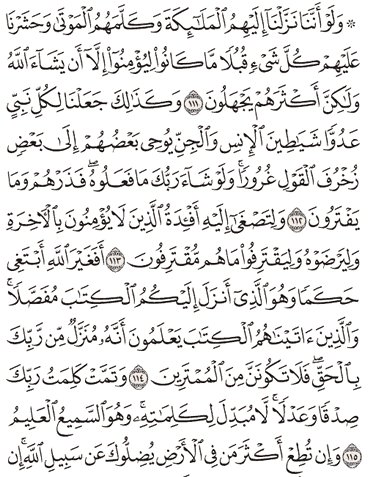 ۞ وَلَوْ أَنَّنَا نَزَّلْنَا إِلَيْهِمُ ٱلْمَلَٰٓئِكَةَ وَكَلَّمَهُمُ ٱلْمَوْتَىٰ وَحَشَرْنَا
عَلَيْهِمْ كُلَّ شَىْءٍ قُبُلًا مَّا كَانُوا۟ لِيُؤْمِنُوٓا۟ إِلَّآ أَن يَشَآءَ ٱللَّهُ
وَلَٰكِنَّ أَكْثَرَهُمْ يَجْهَلُونَ ١١١ وَكَذَٰلِكَ جَعَلْنَا لِكُلِّ نَبِىٍّ
عَدُوًّا شَيَٰطِينَ ٱلْإِنسِ وَٱلْجِنِّ يُوحِى بَعْضُهُمْ إِلَىٰ بَعْضٍ
زُخْرُفَ ٱلْقَوْلِ غُرُورًا ۚ وَلَوْ شَآءَ رَبُّكَ مَا فَعَلُوهُ ۖ فَذَرْهُمْ وَمَا
يَفْتَرُونَ ١١٢ وَلِتَصْغَىٰٓ إِلَيْهِ أَفْـِٔدَةُ ٱلَّذِينَ لَا يُؤْمِنُونَ بِٱلْءَاخِرَةِ
وَلِيَرْضَوْهُ وَلِيَقْتَرِفُوا۟ مَا هُم مُّقْتَرِفُونَ ١١٣ أَفَغَيْرَ ٱللَّهِ أَبْتَغِى
حَكَمًا وَهُوَ ٱلَّذِىٓ أَنزَلَ إِلَيْكُمُ ٱلْكِتَٰبَ مُفَصَّلًا ۚ
وَٱلَّذِينَ ءَاتَيْنَٰهُمُ ٱلْكِتَٰبَ يَعْلَمُونَ أَنَّهُۥ مُنَزَّلٌ مِّن رَّبِّكَ
بِٱلْحَقِّ ۖ فَلَا تَكُونَنَّ مِنَ ٱلْمُمْتَرِينَ ١١٤ وَتَمَّتْ كَلِمَتُ رَبِّكَ
صِدْقًا وَعَدْلًا ۚ لَّا مُبَدِّلَ لِكَلِمَٰتِهِۦ ۚ وَهُوَ ٱلسَّمِيعُ ٱلْعَلِيمُ
١١٥ وَإِن تُطِعْ أَكْثَرَ مَن فِى ٱلْأَرْضِ يُضِلُّوكَ عَن سَبِيلِ ٱللَّهِ ۚ إِن